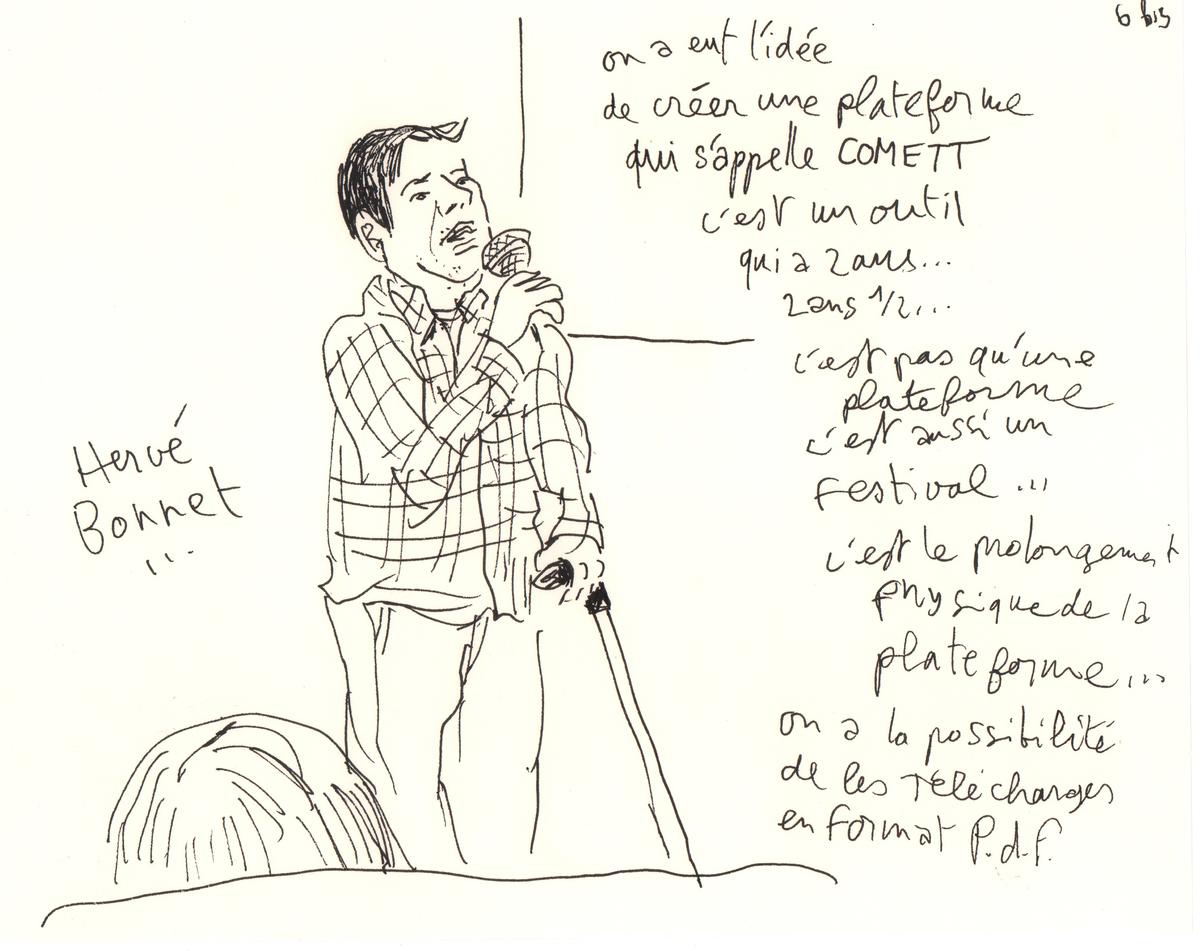 6 bis
on a eut l'idée
de créer une plateforme
qui s'appelle COMETT
c'est un outil
qui a 2 ans...
2 ans 1/2...
c'est pas qu'une
plateforme
c'est aussi un
Festival...
c'est le prolongement
physique de la
plateforme...
on a la possibilité
de les Télécharger
en format P.d.f.
Hervé
Bonnet
...